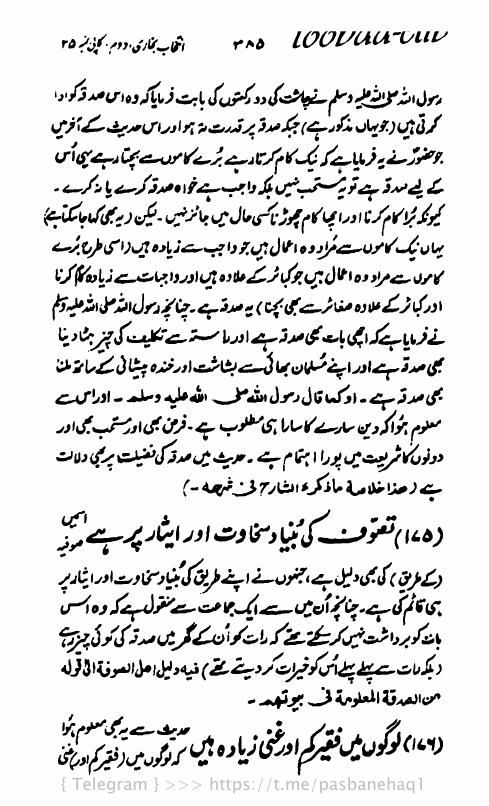 انتخاب بخاری، دوم، کاپی نمبر ۲۵ ۳۸۵
رسول اللہ صلی اللہ علیہ وسلم نے چاشت کی دو رکعتوں کی بابت فرمایا کہ وہ اس صدقہ کو ادا
کرتی ہیں (جو یہاں مذکور ہے) جبکہ صدقہ پر قدرت نہ ہو اور اس حدیث کے آخر میں
جو حضورؐ نے یہ فرمایا ہے کہ نیک کام کرتا رہے بُرے کاموں سے بچتا رہے یہی اُس
کے لیے صدقہ ہے تو یہ مستحب نہیں بلکہ واجب ہے خواہ صدقہ کرے یا نہ کرے ۔
کیونکہ بُرا کام کرنا اور اچھا کام چھوڑنا کسی حال میں جائز نہیں ۔ لیکن (یہ بھی کہا جا سکتا ہے)
یہاں نیک کاموں سے مُراد وہ اعمال ہیں جو واجب سے زیادہ ہیں (اسی طرح بُرے
کاموں سے مراد وہ اعمال ہیں جو کبائر کے علاوہ ہیں اور واجبات سے زیادہ کام کرنا
اور کبائر کے علاوہ صغائر سے بھی بچنا) یہ صدقہ ہے ۔ چنانچہ رسول اللہ صلی اللہ علیہ وسلم
نے فرمایا ہے کہ اچھی بات بھی صدقہ ہے اور راستہ سے تکلیف کی چیز ہٹا دینا
بھی صدقہ ہے اور اپنے مُسلمان بھائی سے بشاشت اور خندہ پیشانی کے ساتھ ملنا
بھی صدقہ ہے ۔ او کما قال رسول اللہ صلی اللہ علیہ وسلم ۔ اور اس سے
معلوم ہُوا کہ دین سارے کا سارا ہی مطلوب ہے ۔ فرض بھی اور مستحب بھی اور
دونوں کا شریعت میں پورا اہتمام ہے ۔ حدیث میں صدقہ کی فضیلت پر بھی دلالت
ہے (ھذا خلاصة ماذکرہ الشارح فی شرحہ ۔)
(۱۷۵) تصوّف کی بُنیاد سخاوت اور ایثار پر ہے اسمیں صوفیہ
(کے طریق) کی بھی دلیل ہے، جنہوں نے اپنے طریق کی بُنیاد سخاوت اور ایثار پر
ہی قائم کی ہے ۔ چنانچہ اُن میں سے ایک جماعت سے منقول ہے کہ وہ اس
بات کو برداشت نہیں کر سکتے تھے کہ رات کو اُن کے گھر میں صدقہ کی کوئی چیز رہے
(بلکہ رات سے پہلے پہلے اُس کو خیرات کر دیتے تھے) فیہ دلیل اھل الصوفة الی قولہ
من الصدقة المعلومة فی بیوتھم ۔
(۱۷۶) لوگوں میں فقیر کم اور غنی زیادہ ہیں حدیث سے یہ بھی معلوم ہُوا
کہ لوگوں میں (فقیر کم اور) غنی
{ Telegram } >>> https://t.me/pasbanehaq1